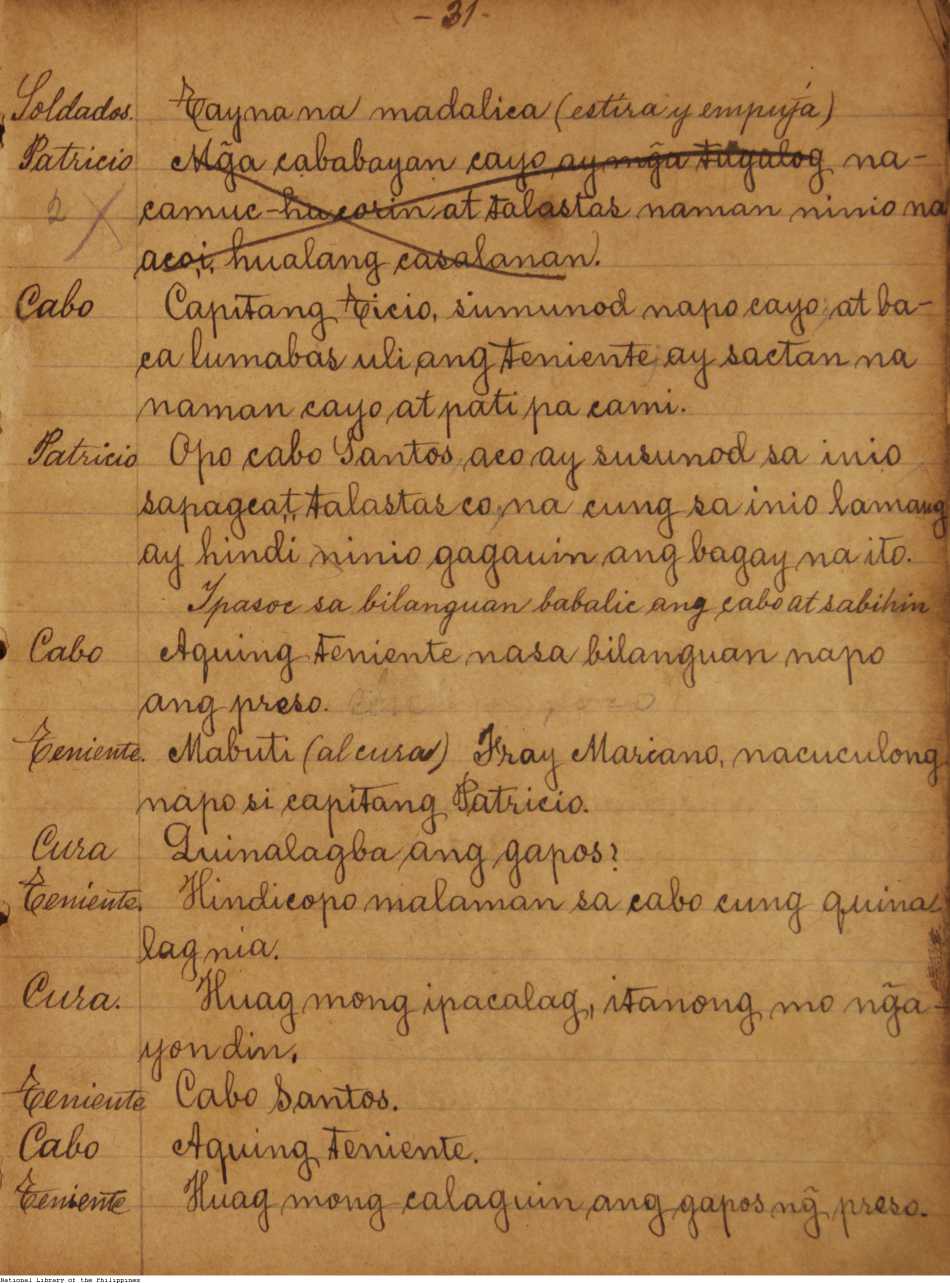 - 31 -
Soldados. Tayna na madalica (estira y empuja)
Patricio Mg̃a cababayan cayo ay mg̃a tagalog na-
2 camuc-ha corin at talastas naman ninio na
acoi, hualang casalanan.
Cabo Capitang Ticio, sumunod napo cayo, at ba-
ca lumabas uli ang teniente ay sactan na
naman cayo at pati pa cami.
Patricio Opo cabo Santos, aco ay susunod sa inio
sapagcat, talastas co, na cung sa inio lamang
ay hindi ninio gagauin ang bagay na ito.
Ipasoc sa bilanguan babalic ang cabo at sabihin
Cabo Aquing teniente nasa bilanguan napo
ang preso.
Teniente. Mabuti (al cura) Fray Marcano, nacuculong
napo si capitang Patricio.
Cura Quinalagba ang gapos?
Teniente. Hindicopo malaman sa cabo cung quina-
lag nia.
Cura. Huag mong ipacalag, itanong mo ng̃a-
yon din.
Teniente Cabo Santos.
Cabo Aquing teniente.
Teniente Huag mong calaguin ang gapos ng̃ preso.
National Library of the Philippines